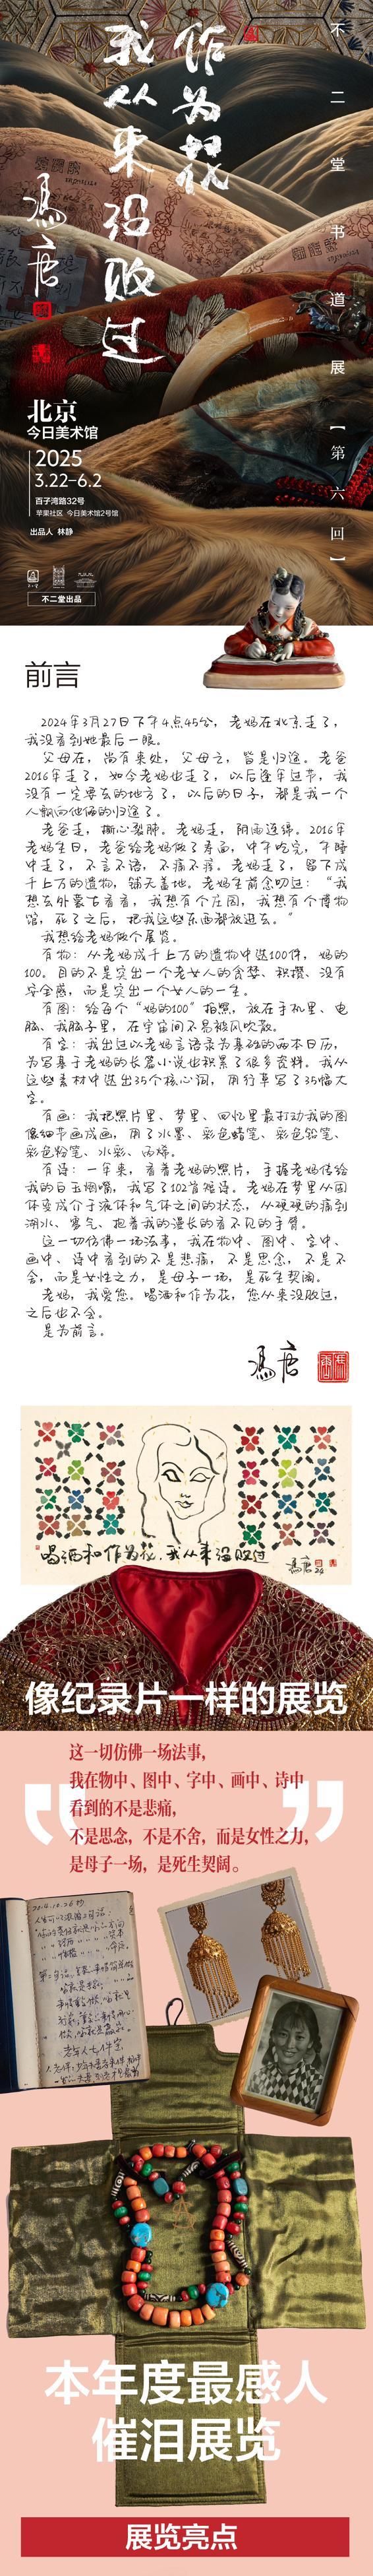 作为花
我从来没败过
冯唐
不二堂书道展【第六回】
北京
今日美术馆
2025
3.22–6.2
百子湾路32号
苹果社区 今日美术馆2号馆
出品人 林静
不二堂出品
前言
2024年3月27日下午4点45分，老妈在北京走了，
我没看到她最后一眼。
父母在，尚有来处，父母去，皆是归途。老爸
2016年走了，如今老妈也走了，以后逢年过节，我
没有一定要去的地方了，以后的日子，都是我一个
人飘向他俩的归途了。
老爸走，撕心裂肺。老妈走，阴雨连绵。2016年
老妈生日，老爸给老妈做了寿面，中午吃完，午睡
中走了，不言不语，不痛不痒。老妈走了，留下成
千上万的遗物，铺天盖地。老妈生前念叨过：“我
想去外蒙古看看，我想有个庄园，我想有个博物
馆，死了之后，把我这些东西都放进去。”
我想给老妈做个展览。
有物：从老妈成千上万的遗物中选100件，妈的
100。目的不是突出一个老女人的贪婪、积攒、没有
安全感，而是突出一个女人的一生。
有图：给每个“妈的100”拍照，放在手机里、电
脑、我脑子里，在宇宙间不易被风吹散。
有字：我出过以老妈言语录为基础的两本日历，
为写基于老妈的长篇小说也积累了很多资料。我从
这些素材中选出35个核心词，用行草写了35幅大
字。
有画：我把照片里、梦里、回忆里最打动我的图
像细节画成画，用了水墨、彩色蜡笔、彩色铅笔、
彩色粉笔、水彩、丙烯。
有诗：一年来，看着老妈的照片，手握老妈传给
我的白玉烟嘴，我写了102首短诗。老妈在梦里从固
体变成介于液体和气体之间的状态，从硬硬的痛到
湖水、雾气、抱着我的漫长的看不见的手臂。
这一切仿佛一场法事，我在物中、图中、字中、
画中、诗中看到的不是悲痛，不是思念，不是不
舍，而是女性之力，是母子一场，是死生契阔。
老妈，我爱您。喝酒和作为花，您从来没败过，
之后也不会。
是为前言。
冯唐
喝酒和作为花，我从来没败过
冯唐
像纪录片一样的展览
这一切仿佛一场法事，
我在物中、图中、字中、画中、诗中
看到的不是悲痛，
不是思念，不是不舍，而是女性之力，
是母子一场，是死生契阔。
本年度最感人
催泪展览
展览亮点